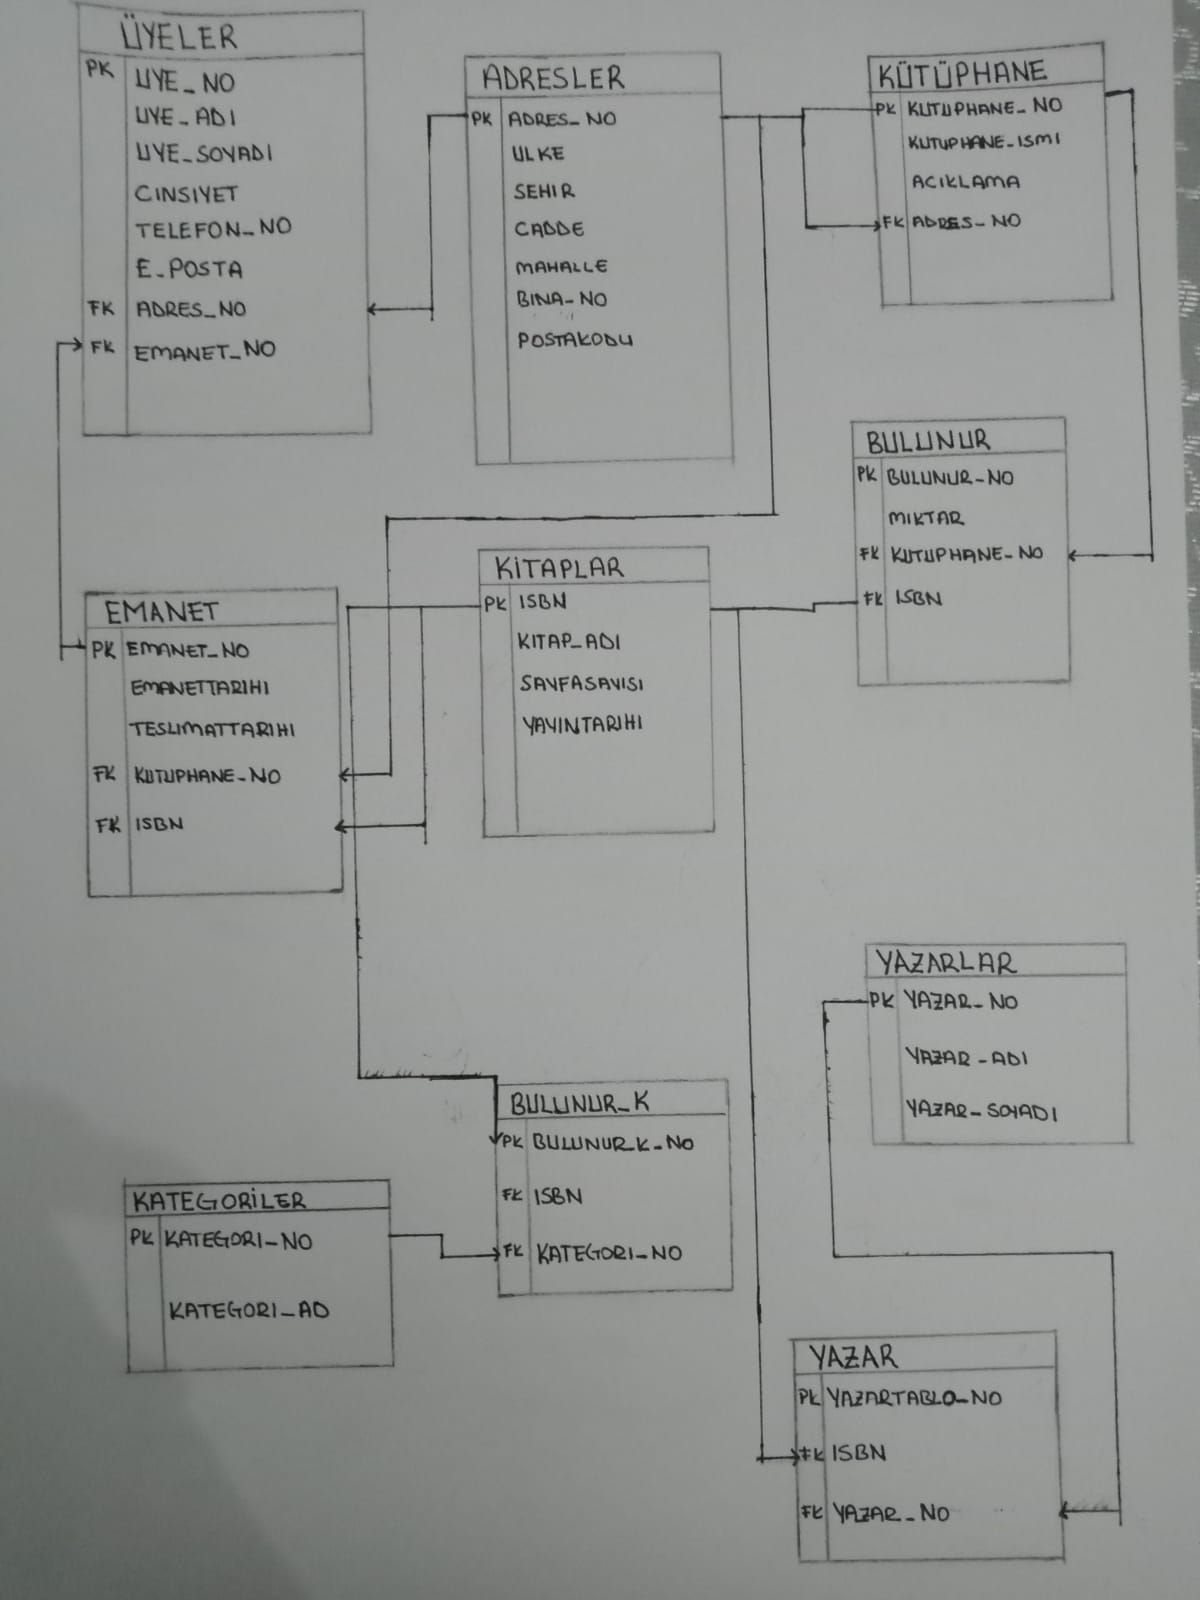 ÜYELER
PK UYE_NO
UYE_ADI
UYE_SOYADI
CINSIYET
TELEFON_NO
E_POSTA
FK ADRES_NO
FK EMANET_NO
ADRESLER
PK ADRES_NO
ULKE
SEHIR
CADDE
MAHALLE
BINA_NO
POSTAKODU
KÜTÜPHANE
PK KUTUPHANE_NO
KUTUPHANE_ISMI
ACIKLAMA
FK ADRES_NO
BULUNUR
PK BULUNUR_NO
MIKTAR
FK KUTUPHANE_NO
FK ISBN
EMANET
PK EMANET_NO
EMANETTARIHI
TESLIMATTARIHI
FK KUTUPHANE_NO
FK ISBN
KİTAPLAR
PK ISBN
KITAP_ADI
SAYFASAYISI
YAYINTARIHI
YAZARLAR
PK YAZAR_NO
YAZAR_ADI
YAZAR_SOYADI
BULUNUR_K
PK BULUNUR_K_NO
FK ISBN
FK KATEGORI_NO
KATEGORİLER
PK KATEGORI_NO
KATEGORI_AD
YAZAR
PK YAZARTABLO_NO
FK ISBN
FK YAZAR_NO